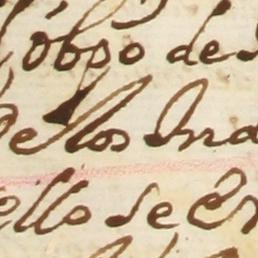 obpo de
dellos Ind
ello se en